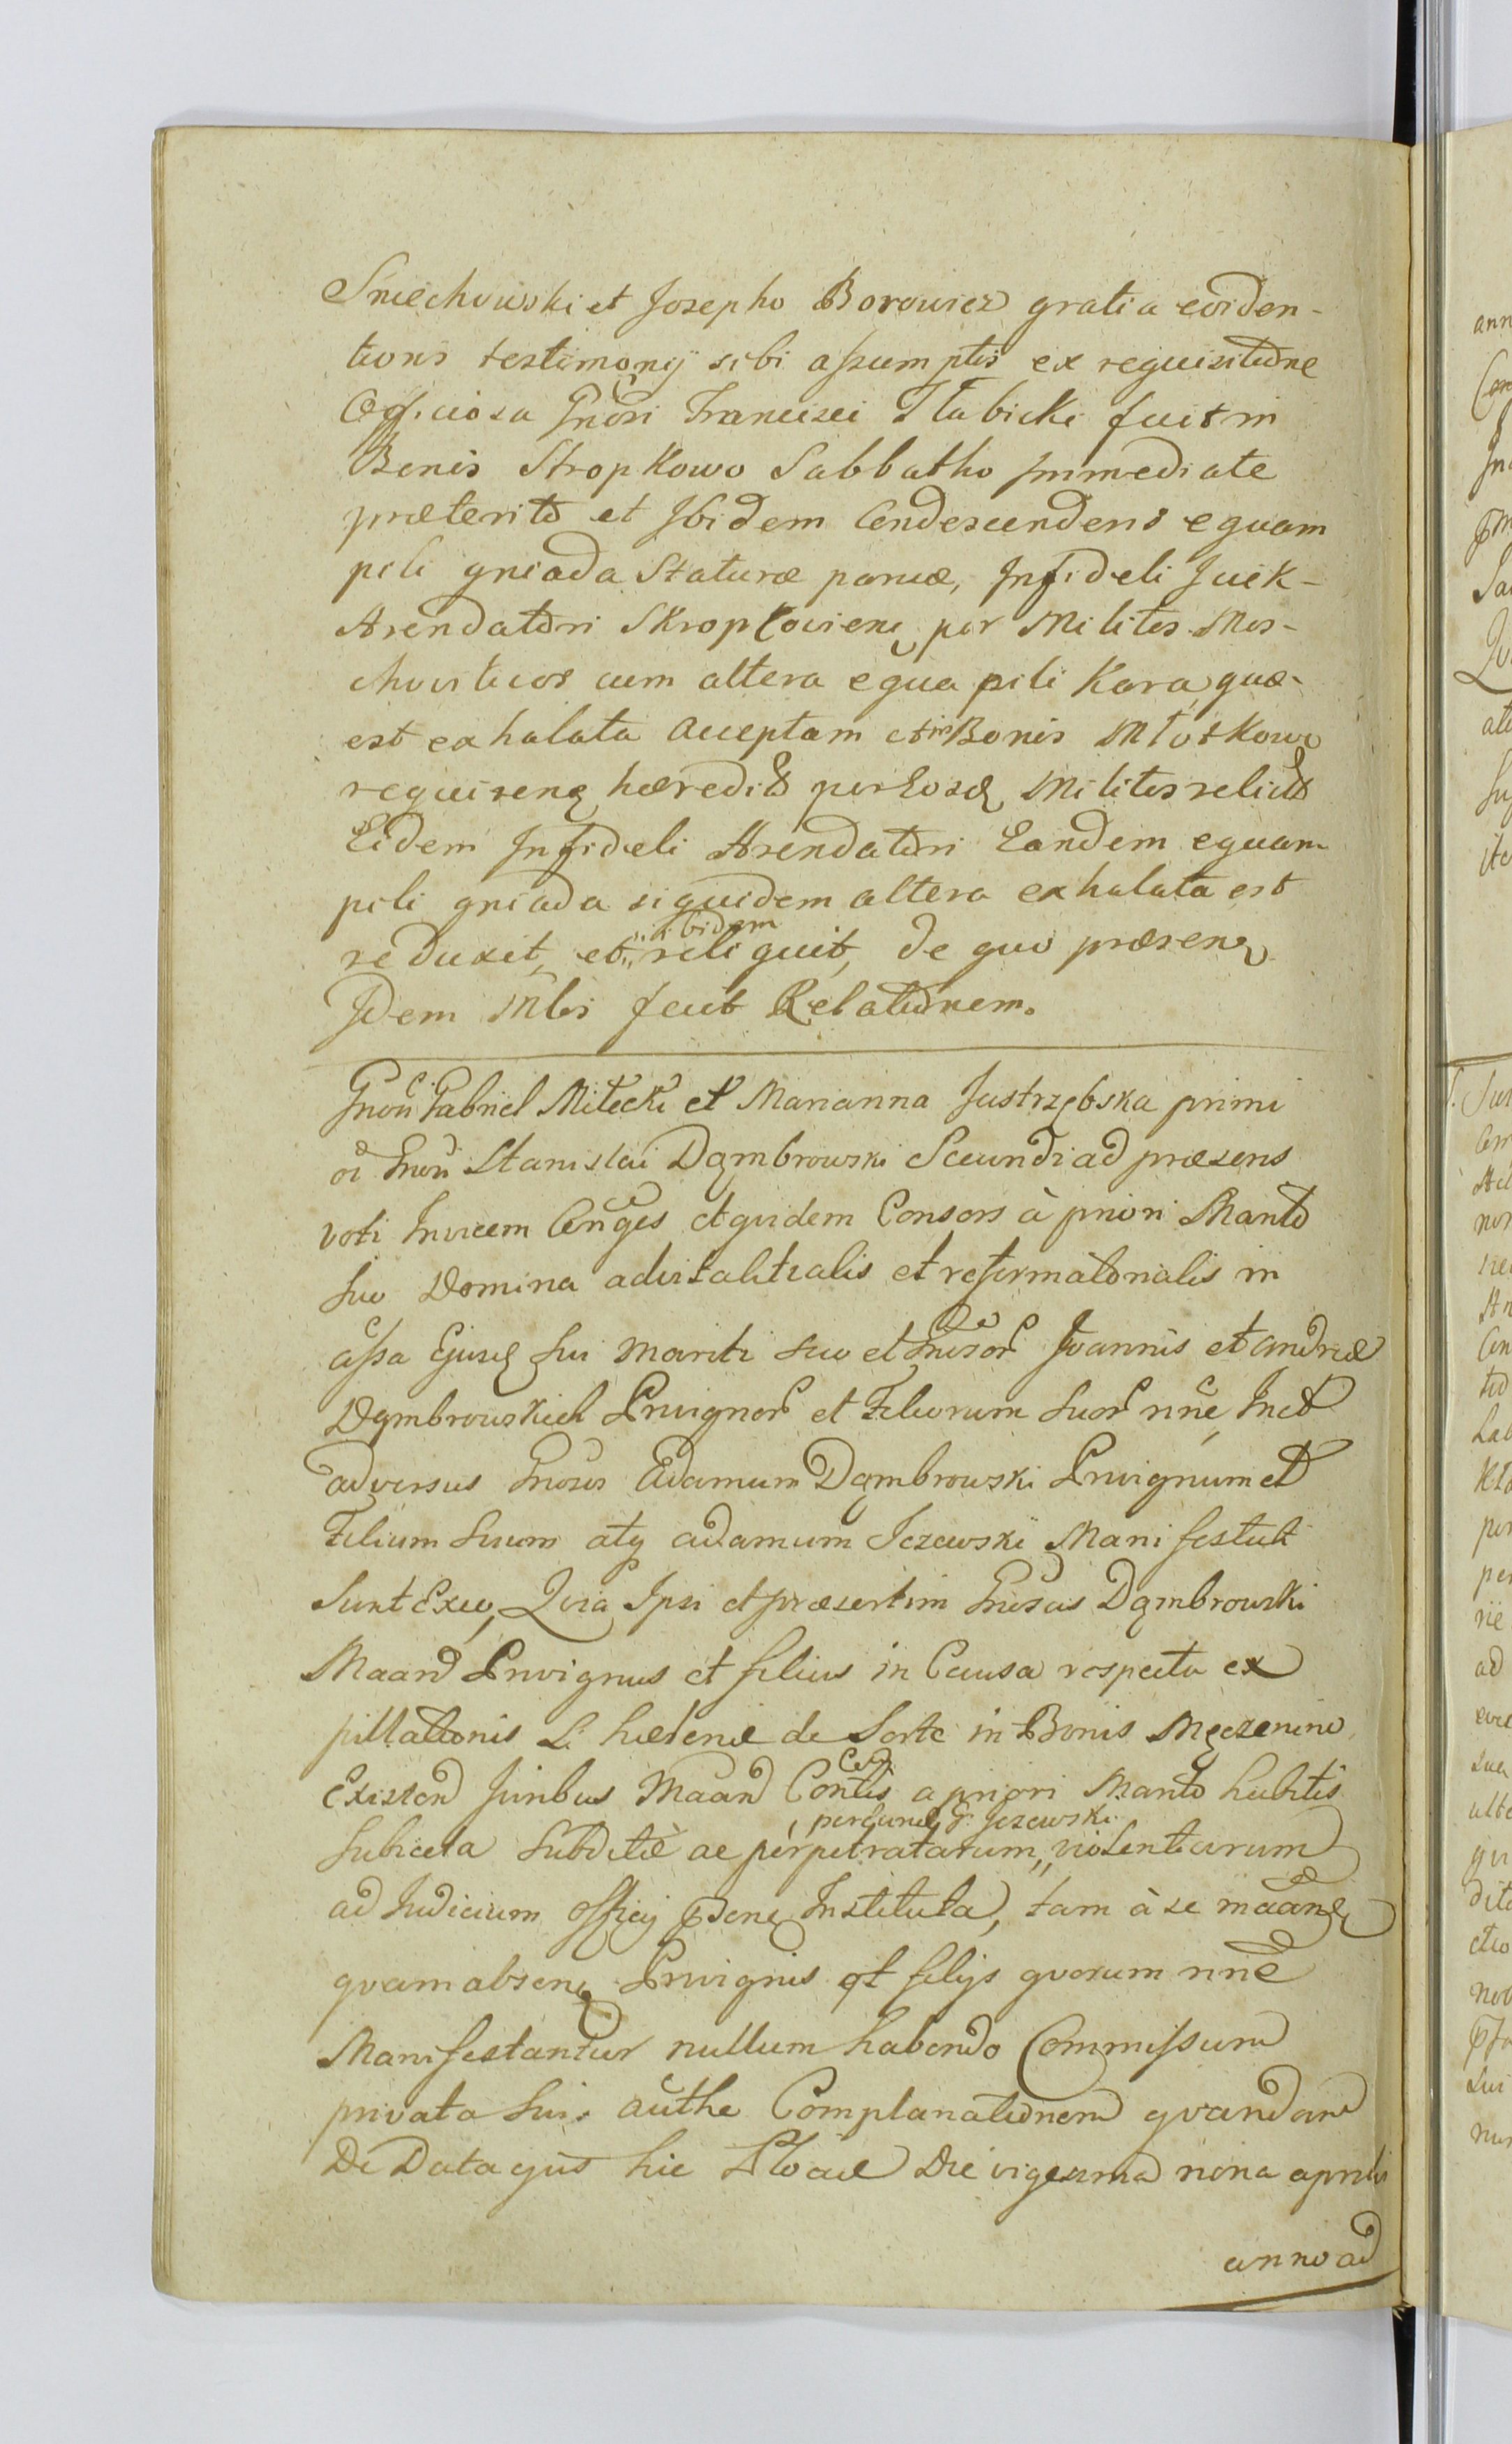 Sniechowski et Josepho Borowicz gratia eviden-
tioris testimonij sibi assumptis ex requisitione
Officiosa Gnosi Francisci Słubicki fuit in
Bonis Stropkowo Sabbatho immediate
præterito et Ibidem Condescendens equam
pili gniada Staturæ parvæ, Infideli Jcek
Arendatori Skropkovien per Milites Mos-
choviticos cum altera equa pili Kara, quæ
est exhalata acceptam et in Bonis Młotkowo
requirens hæredit per Eosd Milites relict
Eidem Infideli Arendatori Eandem equam
pili gniada siquidem altera exhalata est
reduxit, et ibidem reliquit, de quo præsens
Idem Mlis fecit Relationem.
Gnosi Gabriel Miłecki et Marianna Jastrzębska primi
ol Gnosi Stanislai Dąmbrowski Secundi ad præsens
voti Invicem Conges et quidem Consors à priori Marito
suo Domina advitalitialis et reformatorialis in
assa Ejusd sui Mariti suo et Gnosor Joannis et Andreæ
Dąmbrowskich Privignor et Filiorum suor nne
adversus Gnosos Adamum Dąmbrowski Privignum et
Filium suum atq Adamum Jezewski Manifestati
sunt Quia Ipsi et præsertim Gnosus Dąmbrowski
Maand Privignus et filius in Causa respectu ex
pillationis de Sorte in Bonis Męczenino
Existen Juribus Maand Contis a priori Marito habitis
subiecta subditæ ac perpetratarum, per Eund G. Jezewski violentiarum
ad Judicium officij Instituta, tam à se
quam absen Privignis et filijs quorum nne
Manifestantur nullum habendo Commissum
privata sui authe Complanationem quandam
De Data ejus hic Plociæ Die vigesima nona aprilis
anno ad